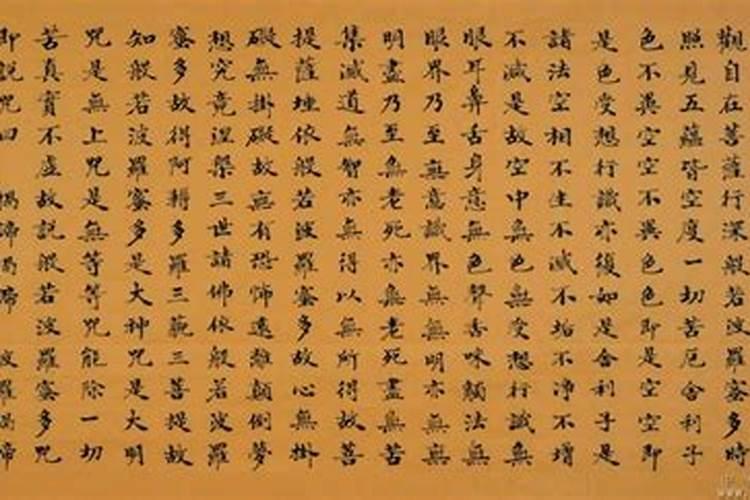 觀自在菩薩行深般若波羅蜜多時
照見五蘊皆空度一切苦厄舍利子
色不異空空不異色色即是空空即
是色受想行識亦復如是舍利子是
諸法空相不生不滅不垢不淨不增
不減是故空中無色無受想行識無
眼耳鼻舌身意無色聲香味觸法無
眼界乃至無意識界無無明亦無無
明盡乃至無老死亦無老死盡無苦
集滅道無智亦無得以無所得故菩
提薩埵依般若波羅蜜多故心無掛
礙無掛礙故無有恐怖遠離顛倒夢
想究竟涅槃三世諸佛依般若波羅
蜜多故得阿耨多羅三藐三菩提故
知般若波羅蜜多是大神咒是大明
咒是無上咒是無等等咒能除一切
苦真實不虛故說般若波羅蜜多咒
即說咒曰 揭諦揭諦 波羅揭諦